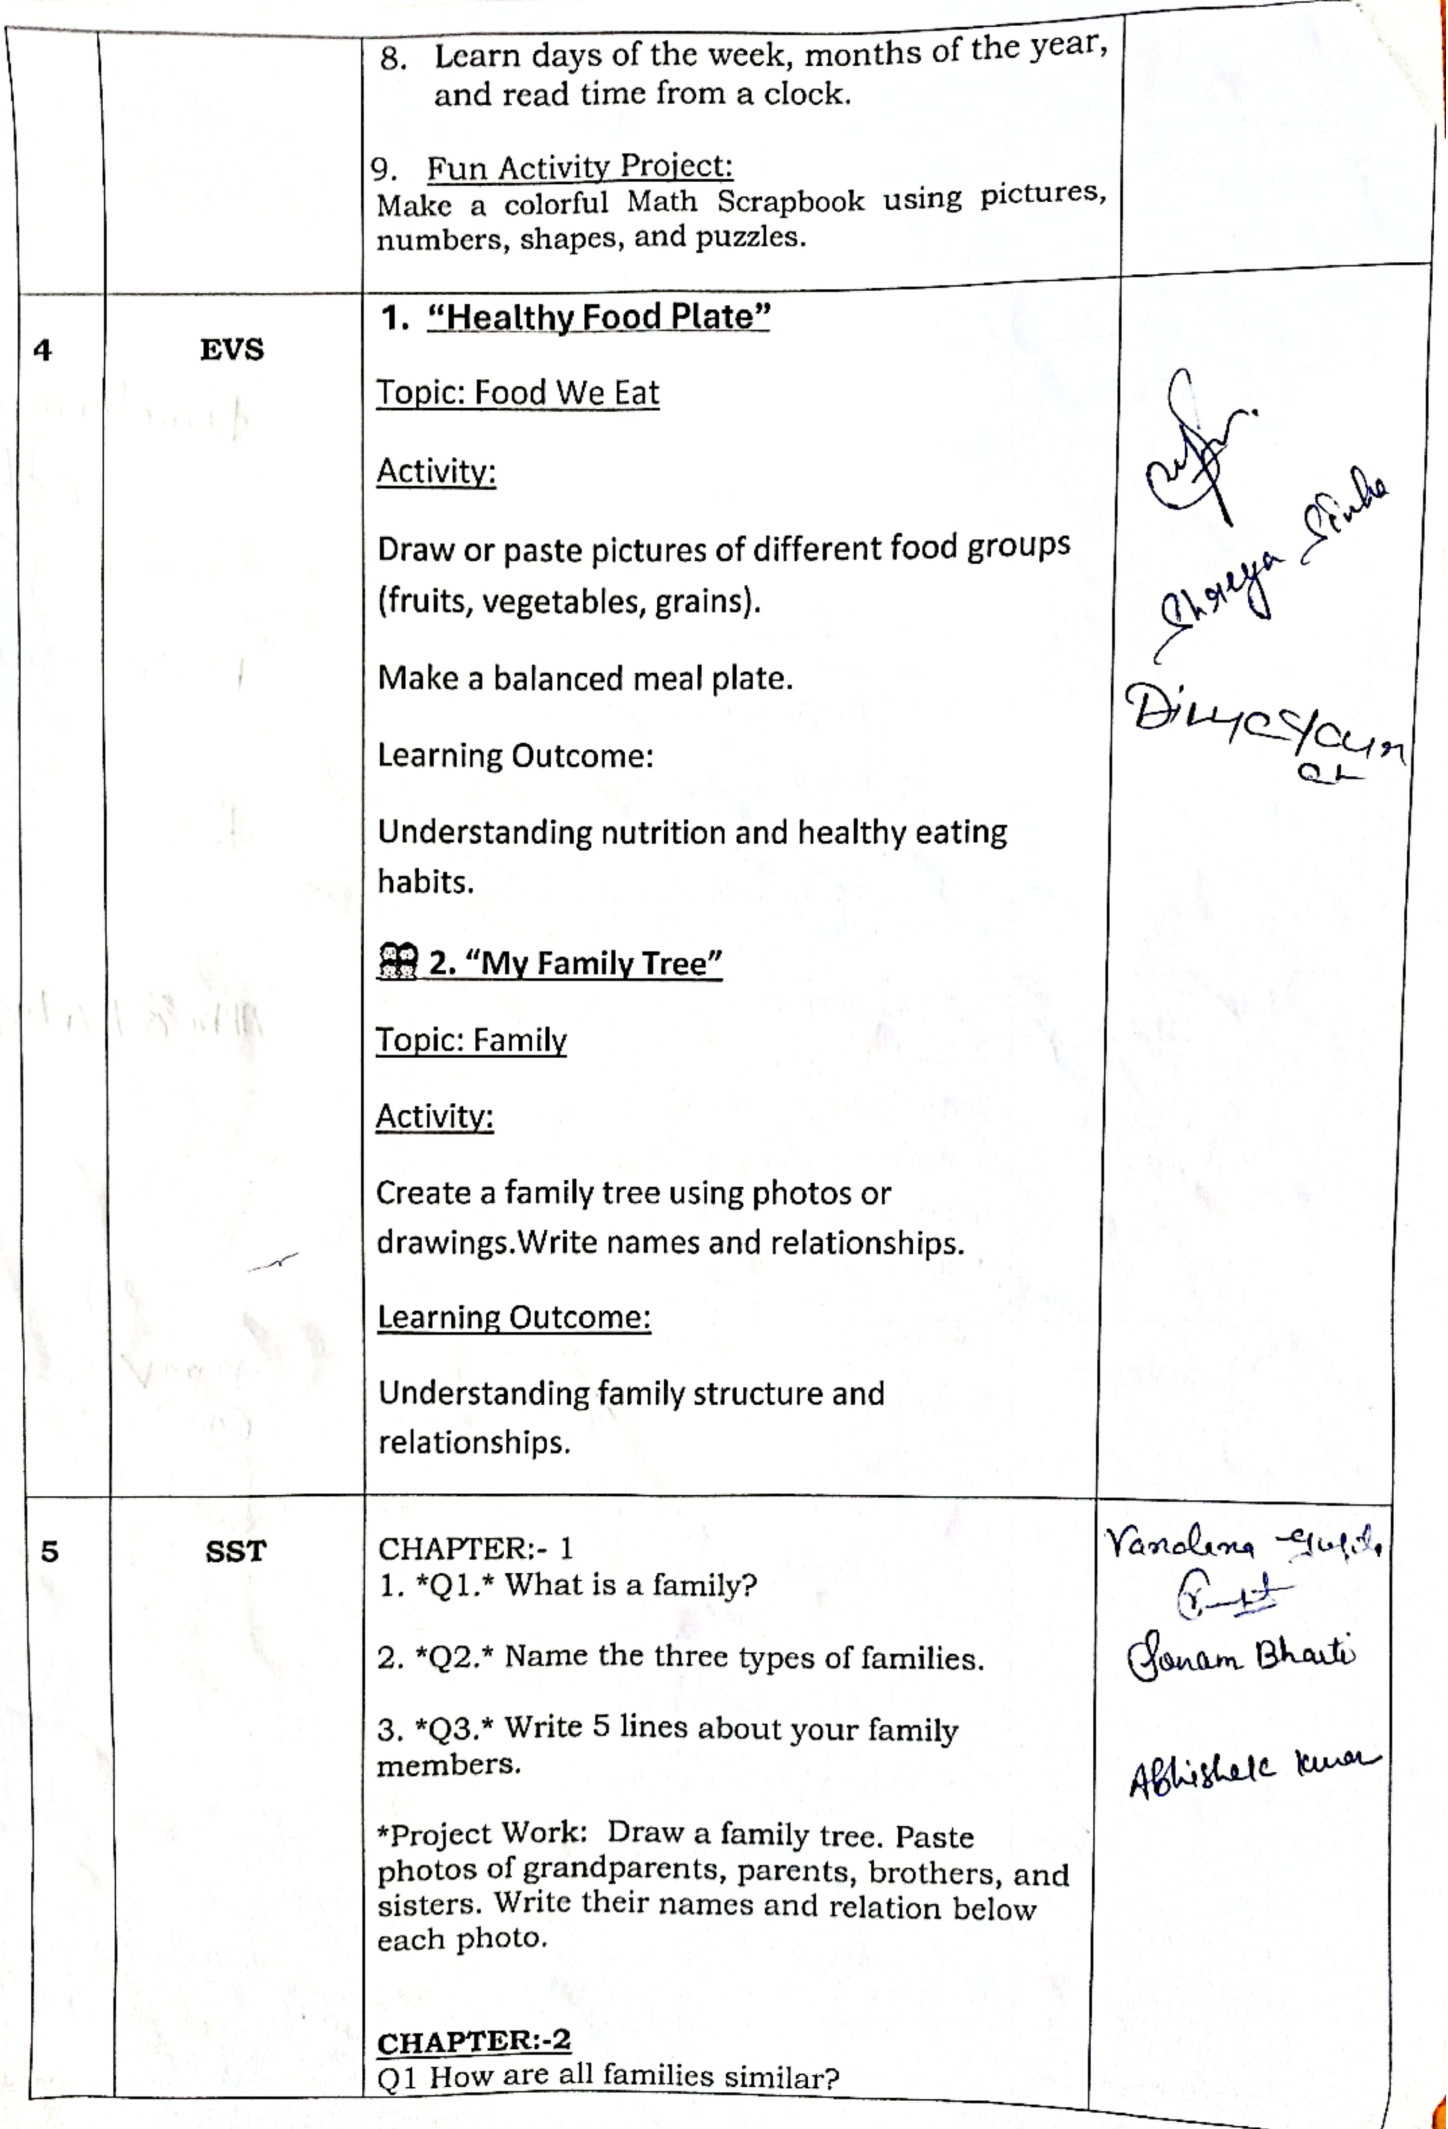 8. Learn days of the week, months of the year,
and read time from a clock.
9. Fun Activity Project:
Make a colorful Math Scrapbook using pictures,
numbers, shapes, and puzzles.
4
EVS
1. “Healthy Food Plate”
Topic: Food We Eat
Activity:
Draw or paste pictures of different food groups
(fruits, vegetables, grains).
Shreya Sinha
Make a balanced meal plate.
Learning Outcome:
Understanding nutrition and healthy eating
habits.
2. “My Family Tree”
Topic: Family
Activity:
Create a family tree using photos or
drawings.Write names and relationships.
Learning Outcome:
Understanding family structure and
relationships.
5
SST
CHAPTER:- 1
1. *Q1.* What is a family?
2. *Q2.* Name the three types of families.
3. *Q3.* Write 5 lines about your family
members.
*Project Work: Draw a family tree. Paste
photos of grandparents, parents, brothers, and
sisters. Write their names and relation below
each photo.
Vandana Gupta
Sonam Bharti
Abhishek Kumar
CHAPTER:-2
Q1 How are all families similar?